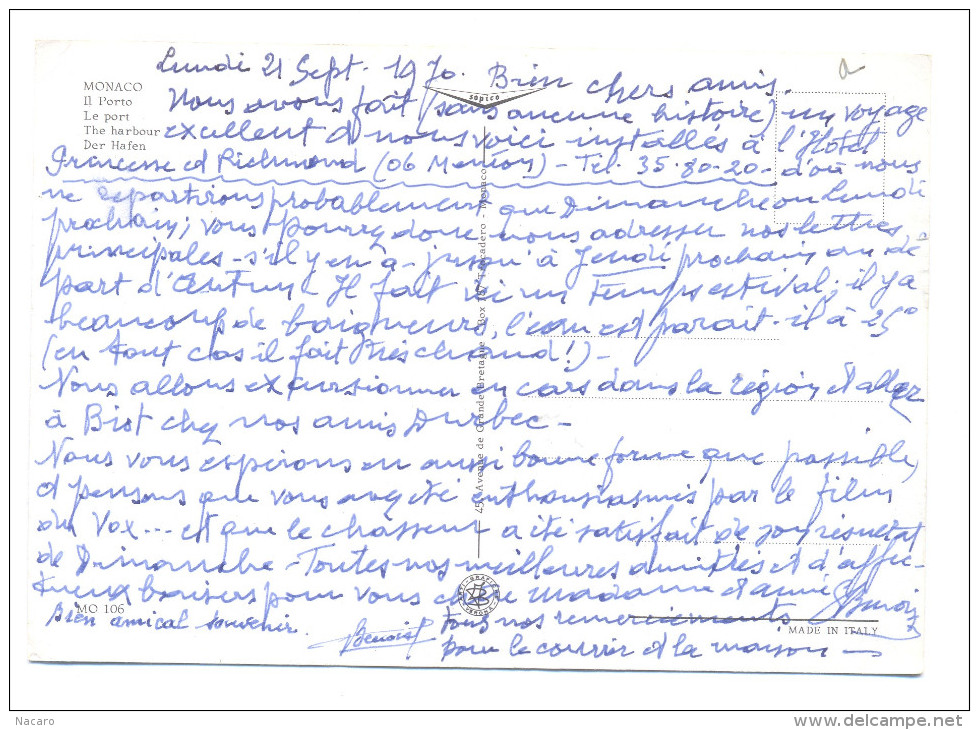 Lundi 21 Sept. 1970. Bien chers amis.
MONACO
Il Porto
Le port
The harbour
Der Hafen
sapico
Nous avons fait (sans aucune histoire) un voyage
excellent et nous voici installés à l'Hotel
Princesse et Richmond (06 Menton) - Tél. 35.80.20 - d'où nous
ne repartirons probablement que Dimanche ou Lundi
prochain; vous pourrez donc nous adresser nos lettres
principales - s'il y en a - jusqu'à Jeudi prochain au dé-
part d'. Il fait ici un temps estival; il y a
beaucoup de baigneurs, l'eau est parait-il à 25°
(en tout cas il fait très chaud!) -
Nous allons excursionner en cars dans la région et aller
à Biot chez nos amis Durbec -
Nous vous espérons en aussi bonne forme que possible,
et pensons que vous avez été enthousiasmés par le film
du Vox... et que le chasseur a été satisfait de son résultat
de Dimanche - Toutes nos meilleures amitiés et d'affec-
tueux baisers pour vous
MO 106
Bien amical souvenir.
Benoist
Tous nos remerciements
pour le courrier et la maison -
MADE IN ITALY
45, Avenue de Grande Bretagne - Box 187 Trocadero - Monaco
Nacaro
www.delcampe.net